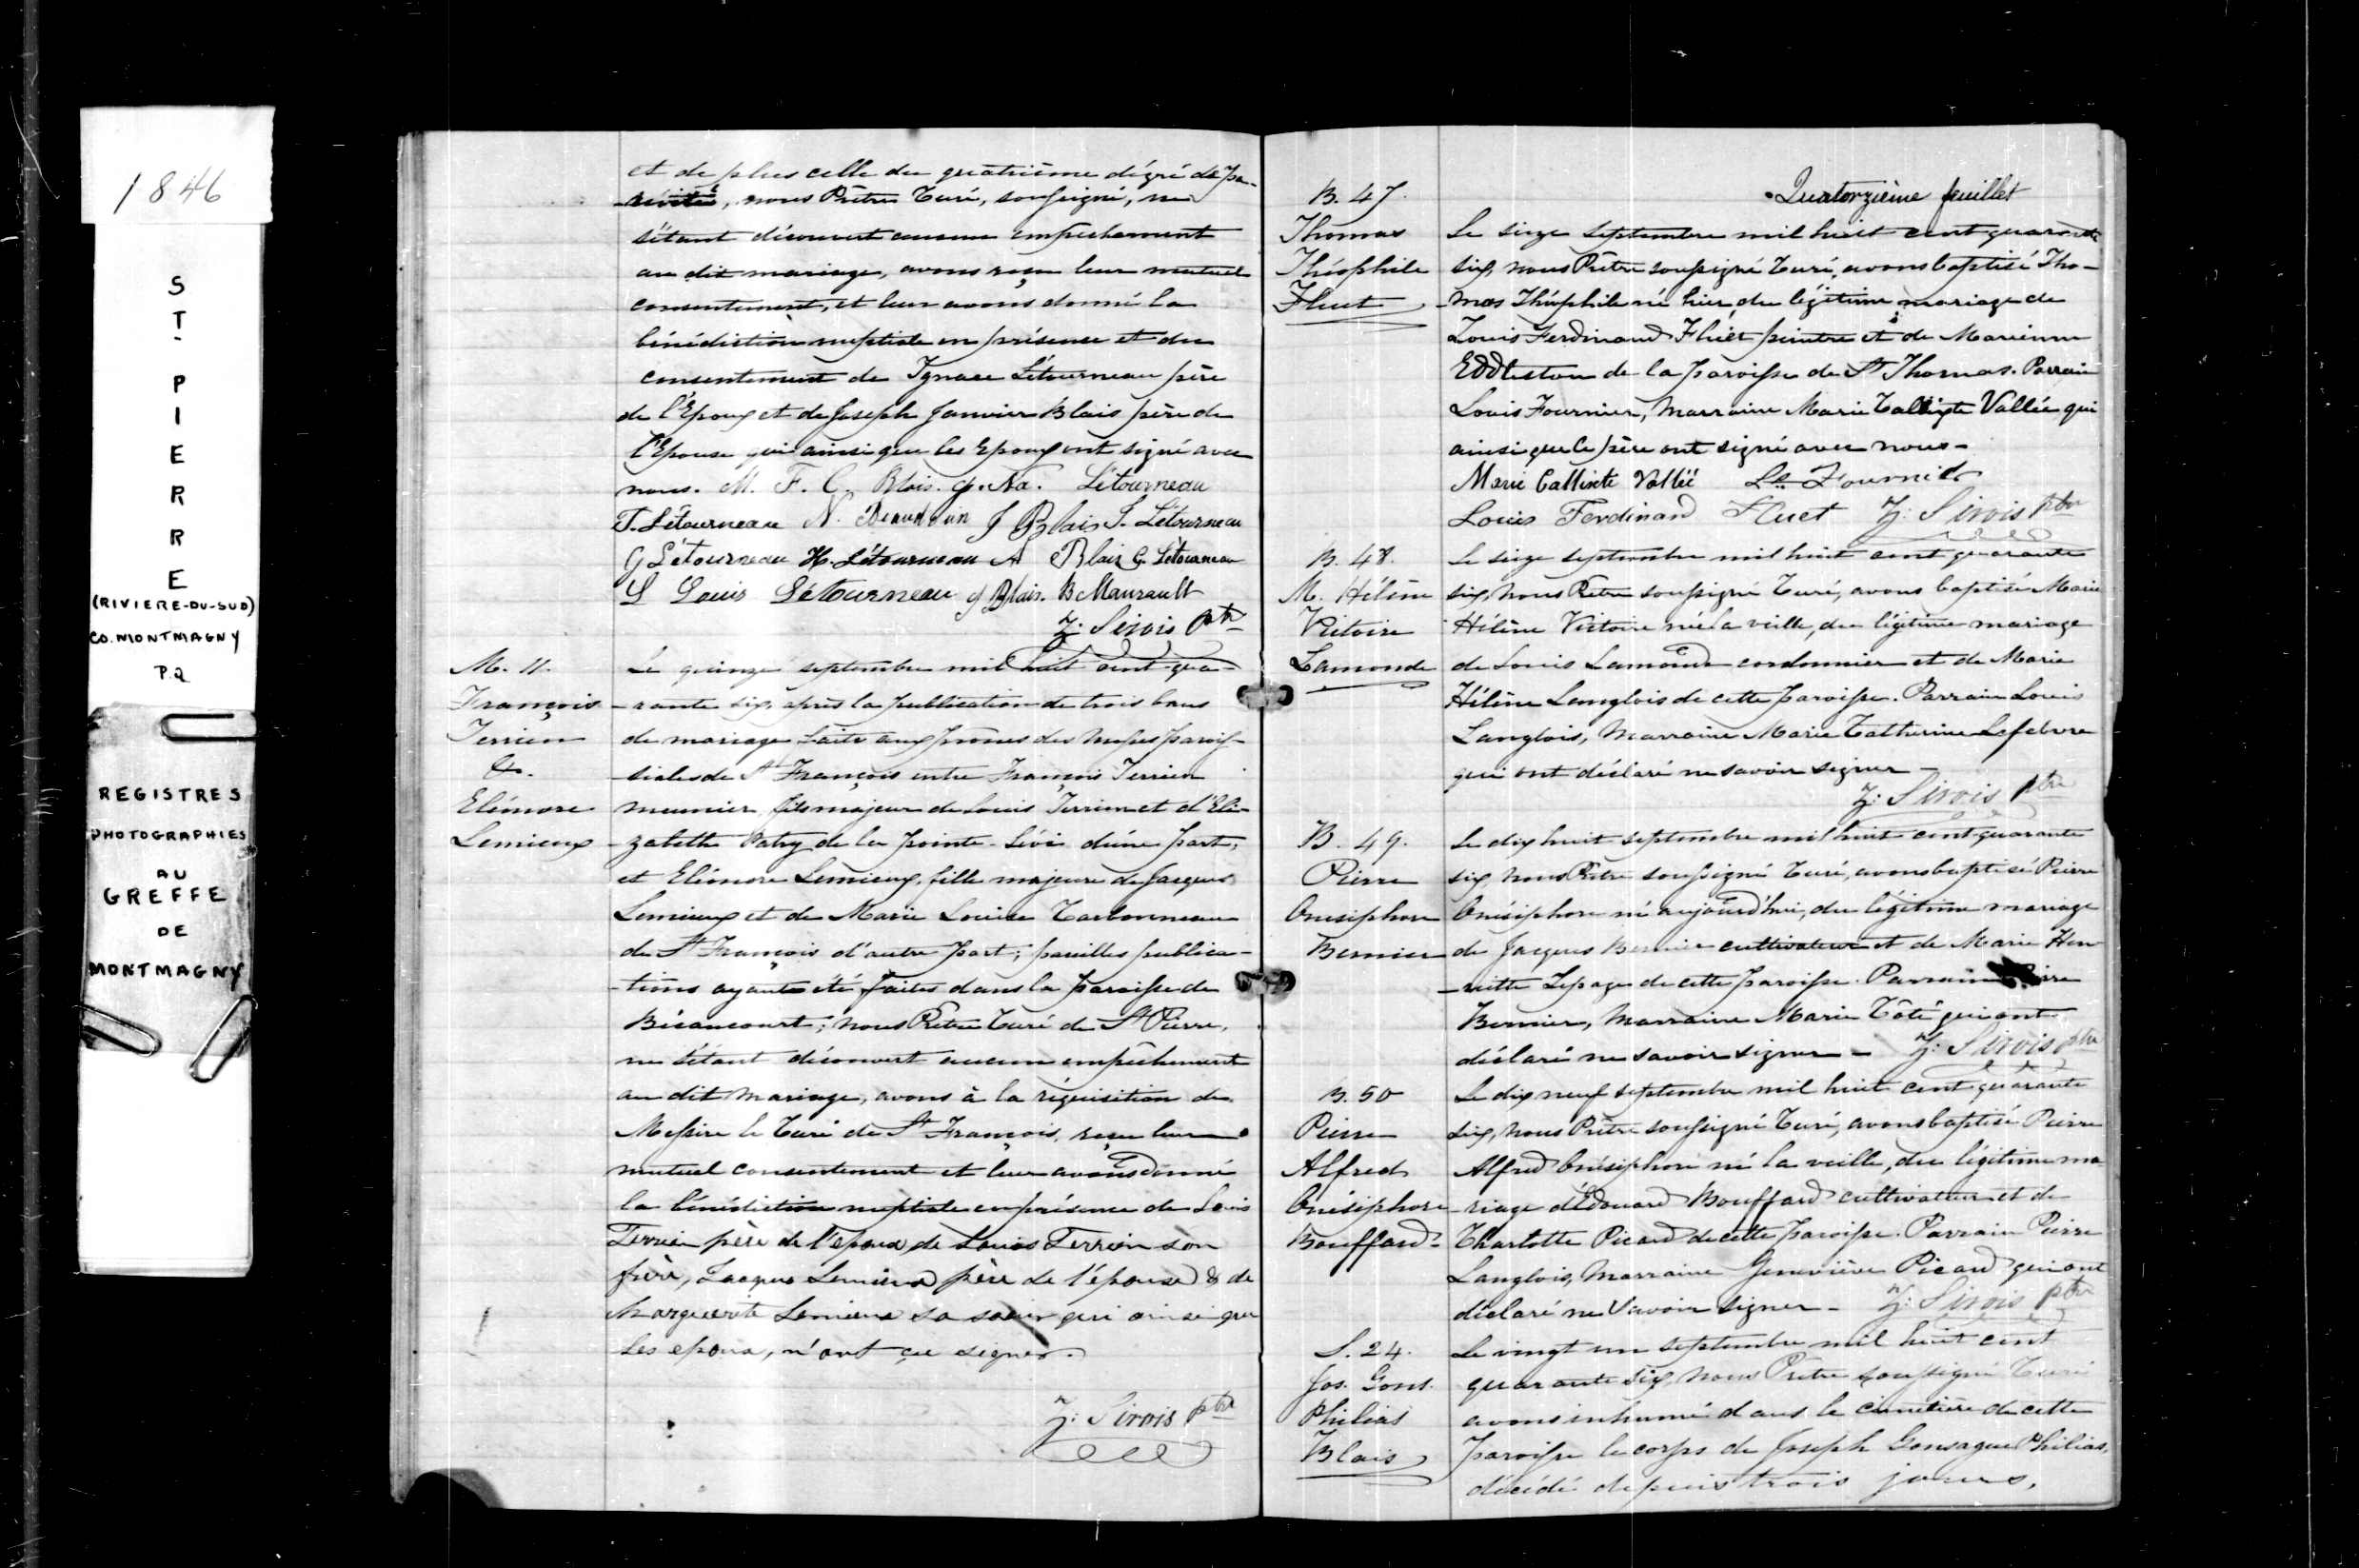 1846
ST-PIERRE
(RIVIERE-DU-SUD)
CO. MONTMAGNY
P.Q
REGISTRES
PHOTOGRAPHIES
AU
GREFFE
DE
MONTMAGNY
et de plus celle du quatrième dégré de pa-
, nous Prêtre Curé, soussigné, ne
s'étant découvert aucun empêchement
au dit mariage, avons reçu leur mutuel
consentement, et leur avons donné la
bénédiction nuptiale en présence et du
consentement de Ignace Létourneau père
de l'Epoux et de Joseph Janvier Blais père de
l'Epouse qui ainsi que les Epoux ont signé avec
nous. M. F. C. Blais. J. Na. Létourneau
T. Létourneau N. Beaudoin J Blais S. Létourneau
G Létourneau H. Létourneau A Blais G. Létourneau
L Louis Létourneau J Blais. B Maurault
Z: Sirois ptr
M. 11.
François
Terrien
&.
Eléonore
Lemieux
Le quinze septembre mil huit cent qua-
-rante six, après la publication de trois bans
de mariage faite aux prônes des Messes parois-
-siales de St François entre François Terrien
meunier, fils majeur de Louis Terrien et d'Eli-
-zabeth Patry de la pointe-Lévi d'une part,
et Eléonore Lemieux, fille majeure de Jacques
Lemieux et de Marie Louise Carbonneau
de St François d'autre part; pareilles publica-
-tions ayant été faites dans la paroisse de
Bécancourt; nous Prêtre Curé de St Pierre,
ne s'étant découvert aucun empêchement
au dit mariage, avons à la réquisition de
Messire le Curé de St François, reçu leur
mutuel consentement et leur avons donné
la bénédiction nuptiale en présence de Louis
Terrien père de l'epoux de Louis Terrien son
frère, Jacques Lemieux père de l'épouse & de
Marguerite Lemieux sa soeur qui ainsi que
les epoux, n'ont çu signer.
Z: Sirois ptr
Quatorzième feuillet
B. 47.
Thomas
Théophile
Fluet
Le seize septembre mil huit cent quarante
six, nous Prêtre soussigné Curé, avons baptisé Tho-
-mas Théophile né hier, du légitime mariage de
Louis Ferdinand Fluet peintre et de Marienne
Eddleston de la paroisse de St Thomas. Parrain
Louis Fournier, Marraine Marie Callixte Vallée qui
ainsi que le père ont signé avec nous-
Marie Callixte Vallée Ls Fournier
Louis Ferdinand Fluet Z: Sirois ptr
B. 48.
M. Hélène
Victoire
Lamonde
Le seize septembre mil huit cent quarante
six, nous Prêtre soussigné Curé, avons baptisé Marie
Hélène Victoire née la veille, du légitime mariage
de Louis Lamonde cordonnier et de Marie
Hélène Langlois de cette paroisse. Parrain Louis
Langlois, Marraine Marie Catherine Lefebvre
qui ont déclaré ne savoir signer-
Z: Sirois ptr
B. 49.
Pierre
Onésiphore
Bernier
Le dix huit septembre mil huit cent quarante
six, nous Prêtre soussigné Curé, avons baptisé Pierre
Onésiphore né aujourd'hui, du légitime mariage
de Jacques Bernier cultivateur et de Marie Hen-
-riette Lepage de cette paroisse. Parrain Pierre
Bernier, Marraine Marie Côté qui ont
déclaré ne savoir signer - Z: Sirois ptr
B. 50
Pierre
Alfred
Onésiphore
Bouffard-
Le dix neuf septembre mil huit cent quarante
six, nous Prêtre soussigné Curé, avons baptisé Pierre
Alfred Onésiphore né la veille, du légitime ma
-riage d'Edouard Bouffard cultivateur et de
Charlotte Picard de cette paroisse. Parrain Pierre
Langlois, Marraine Geneviève Picard qui ont
déclaré ne savoir signer - Z: Sirois ptr
S. 24.
Jos. Gons.
Philias
Blais
Le vingt un septembre mil huit cent
quarante six, nous Prêtre soussigné Curé
avons inhumé dans le cimetière de cette
paroisse le corps de Joseph Gonsague Philias,
décédé depuis trois jours,